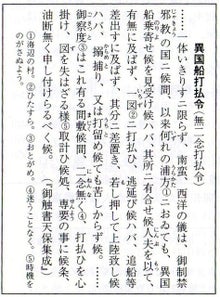 異国船打払令(無二念打払令)
……一体いきりすニ限らず、南蛮、西洋の儀は、御制禁
邪教の国ニ候間、以来何れの浦方ニおゐても、異国
船乗寄せ候を見受け候ハバ、其所ニ有合せ候人夫を以て、
有無に及ばず、一図ニ打払ひ、逃延び候ハバ、追船等
差出すに及ばず、其分ニ差置き、若し押して上陸致し候
ハバ、搦捕り、又は打留め候ても苦しからず候。……
御察度ハこれ有る間敷候間、二念無く、打払ひを心
掛け、図を失はざる様取計ひ候処、専要の事に候条、
油断無く申し付けらるべく候。
『御触書天保集成』
①海辺の村。②ひたすら。③おとがめ。④迷うことなく。⑤時機を
のがさぬよう。